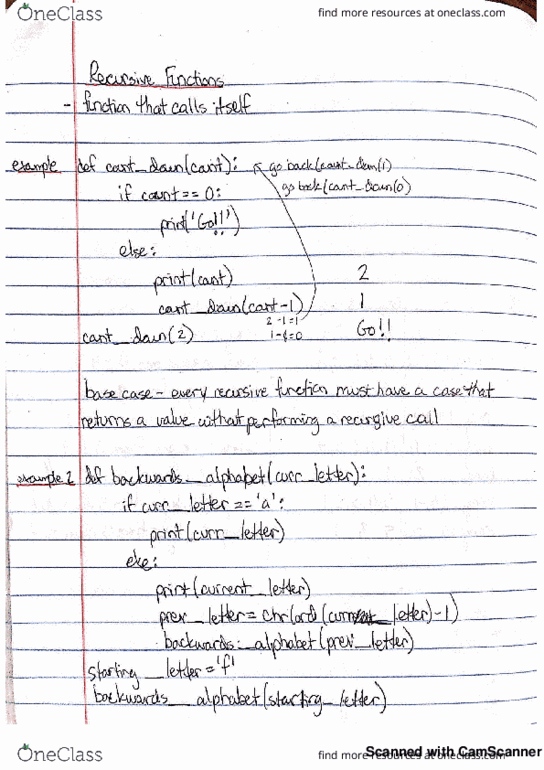 OneClass
find more resources at oneclass.com
Recursive Functions
- function that calls itself
example def count_down(count): go back (count_down(1)
if count == 0: go back (count_down(0)
print('Go!!')
else:
print(count) 2
count_down(count-1) 1
2-1=1
count_down(2) 1-1=0 Go!!
base case - every recursive function must have a case that
returns a value without performing a recursive call
example 2 def backwards_alphabet(curr_letter):
if curr_letter == 'a':
print(curr_letter)
else:
print(current_letter)
prev_letter = chr(ord(current_letter)-1)
backwards_alphabet(prev_letter)
starting_letter = 'f'
backwards_alphabet(starting_letter)
OneClass
find more resources at oneclass.com
Scanned with CamScanner